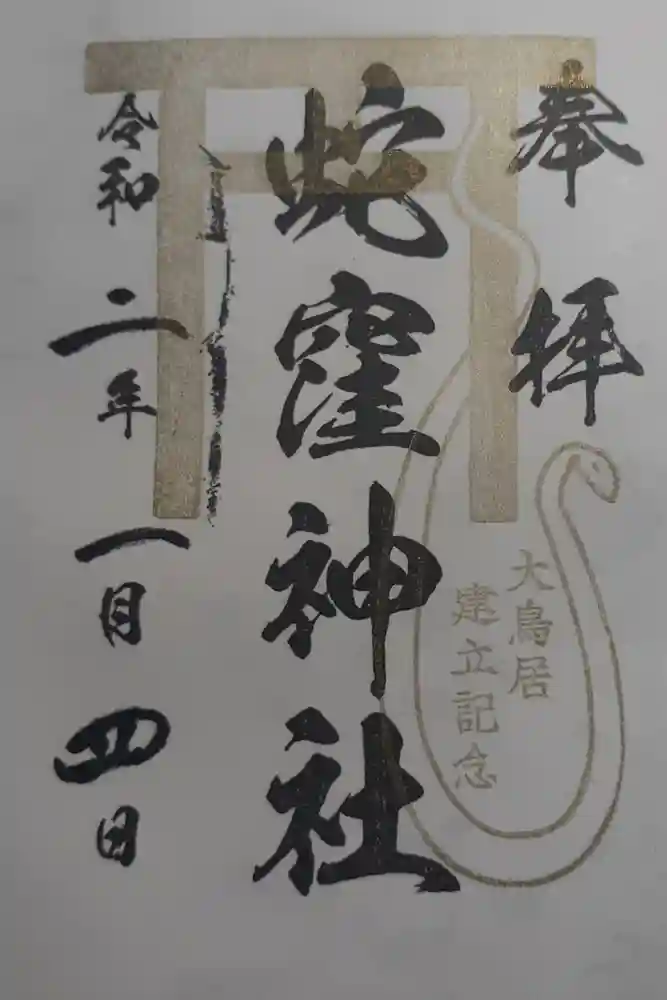 奉拝
蛇窪神社
大鳥居
建立記念
令和二年一月四日